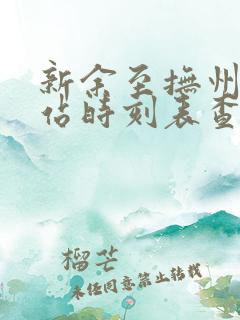 新余至撫州
佔時刻表查
榴芒
未任同意禁止转载